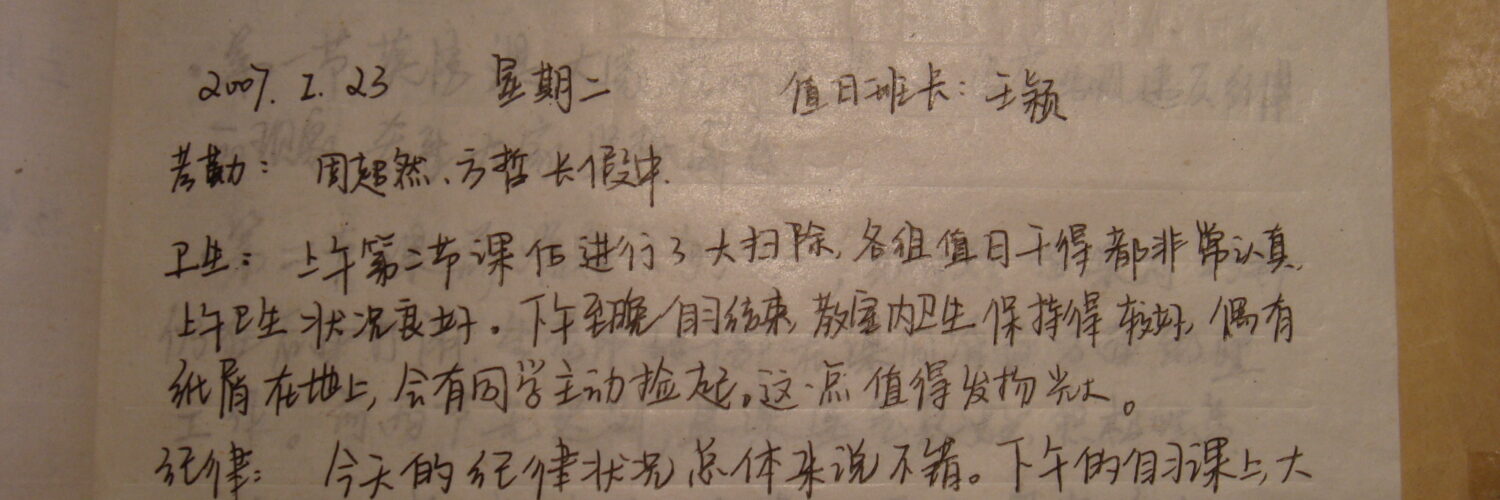 2007. 1. 23 星期二 值日班长: 王颖
考勤: 周超然、方哲长假中.
卫生: 上午第二节课后进行了大扫除, 各组值日干得都非常认真,
上午卫生状况良好。下午至晚自习结束, 教室内卫生保持得较好, 偶有
纸屑在地上, 会有同学主动捡起。这点值得发扬光大。
纪律: 今天的纪律状况总体来说不错。下午的自习课上, 大